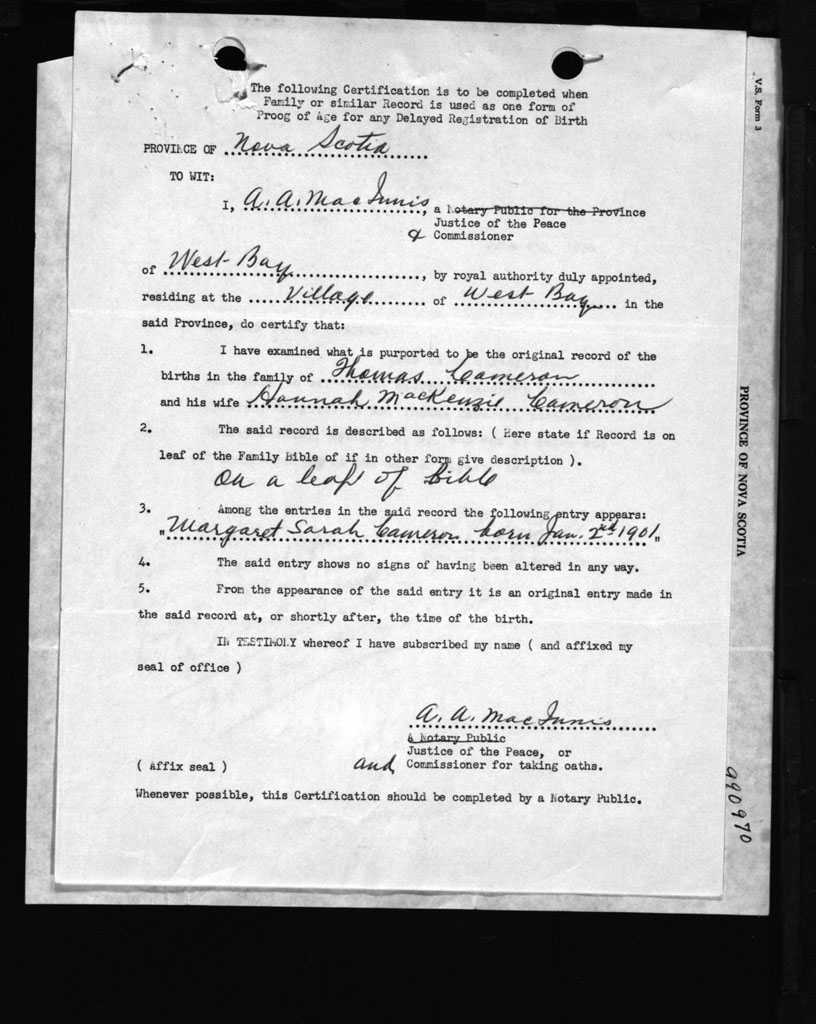 The following Certification is to be completed when
Family or similar Record is used as one form of
Proog of Age for any Delayed Registration of Birth
PROVINCE OF Nova Scotia
TO WIT:
I, A. A. MacInnis, a Notary Public for the Province
Justice of the Peace
& Commissioner
of West Bay, by royal authority duly appointed,
residing at the Village of West Bay in the
said Province, do certify that:
1. I have examined what is purported to be the original record of the
births in the family of Thomas Cameron
and his wife Hannah MacKenzie Cameron
2. The said record is described as follows: ( Here state if Record is on
leaf of the Family Bible of if in other form give description ).
On a leaf of Bible
3. Among the entries in the said record the following entry appears:
"Margaret Sarah Cameron born Jan. 2nd 1901"
4. The said entry shows no signs of having been altered in any way.
5. From the appearance of the said entry it is an original entry made in
the said record at, or shortly after, the time of the birth.
IN TESTIMONY whereof I have subscribed my name ( and affixed my
seal of office )
A. A. MacInnis
A Notary Public
Justice of the Peace, or
( Affix seal ) and Commissioner for taking oaths.
Whenever possible, this Certification should be completed by a Notary Public.
V.S. Form 3
PROVINCE OF NOVA SCOTIA
990970